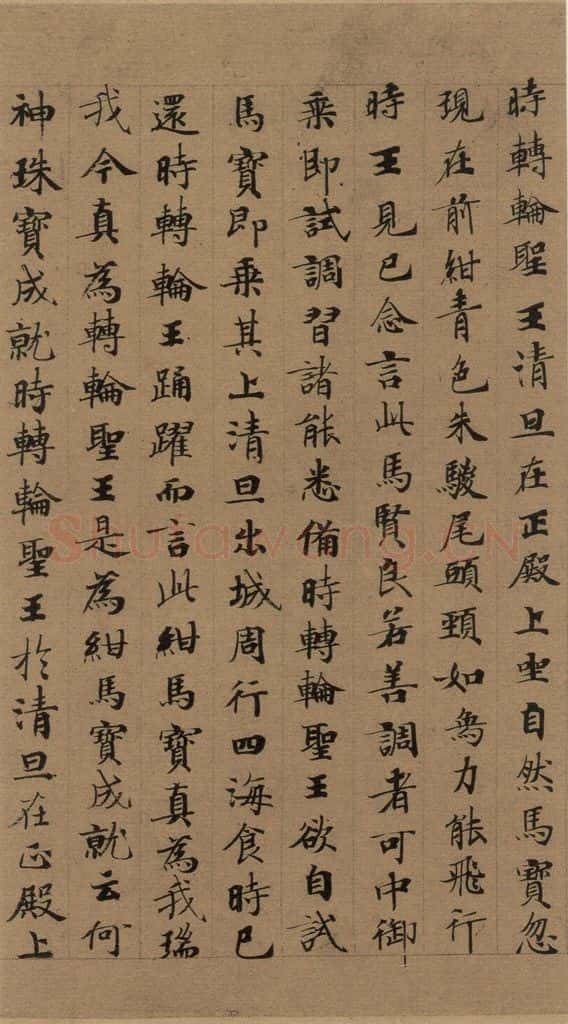 時轉輪聖王清旦在正殿上坐自然馬寶忽
現在前紺青色朱騣尾頭頸如烏力能飛行
時王見已念言此馬賢良若善調者可中御
乘即試調習諸能悉備時轉輪聖王欲自試
馬寶即乘其上清旦出城周行四海食時已
還時轉輪王踊躍而言此紺馬寶真為我瑞
我今真為轉輪聖王是為紺馬寶成就云何
神珠寶成就時轉輪聖王於清旦在正殿上
Shufawang.CN